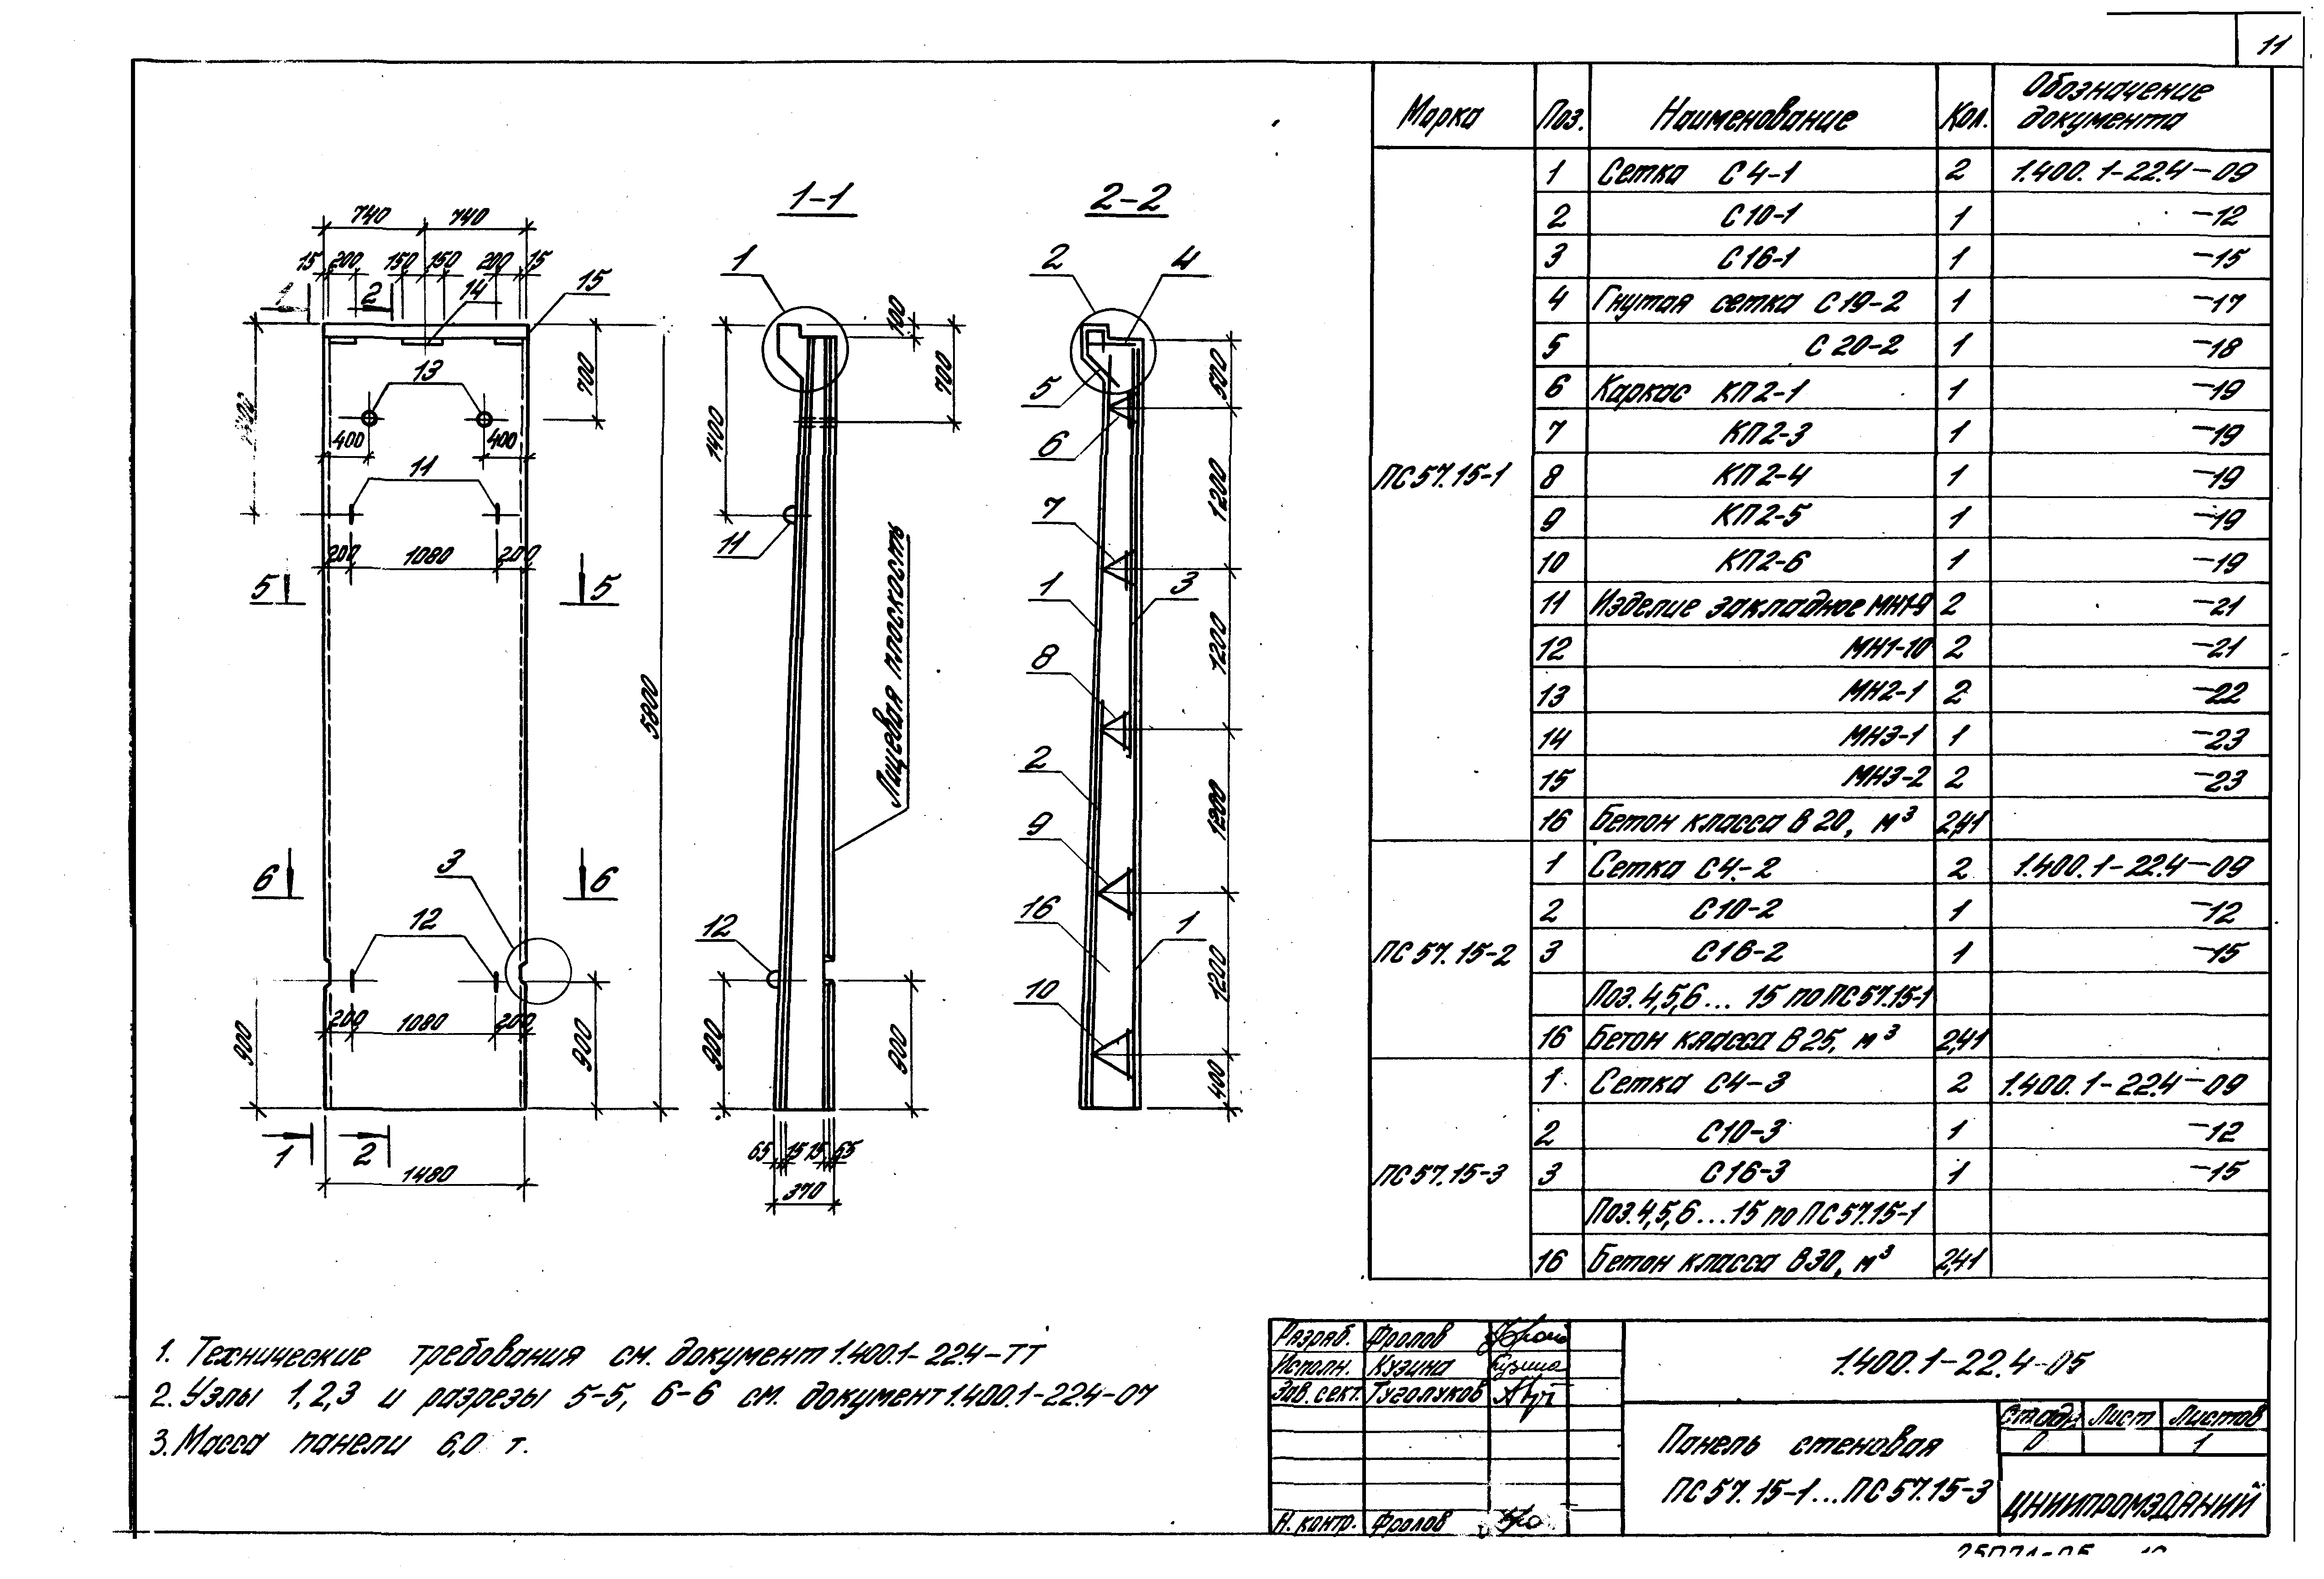 11
Марка Поз. Наименование Кол. Обозначение документа
ПС 57.15-1
1 Сетка С4-1 2 1.400.1-22.4-09
2 С10-1 1 -12
3 С16-1 1 -15
4 Гнутая сетка С19-2 1 -17
5 С20-2 1 -18
6 Каркас КП2-1 1 -19
7 КП2-3 1 -19
8 КП2-4 1 -19
9 КП2-5 1 -19
10 КП2-6 1 -19
11 Изделие закладное МН1-9 2 -21
12 МН1-10 2 -21
13 МН2-1 2 -22
14 МН3-1 1 -23
15 МН3-2 2 -23
16 Бетон класса В20, м³ 2,41
ПС 57.15-2
1 Сетка С4-2 2 1.400.1-22.4-09
2 С10-2 1 -12
3 С16-2 1 -15
Поз. 4,5,6... 15 по ПС57.15-1
16 Бетон класса В25, м³ 2,41
ПС 57.15-3
1 Сетка С4-3 2 1.400.1-22.4-09
2 С10-3 1 -12
3 С16-3 1 -15
Поз. 4,5,6...15 по ПС57.15-1
16 Бетон класса В30, м³ 2,41
740 740
15 200 150 150 200 15
2 14 15
13
700
400 400
11
200 1080 200
5 5
5800
6 6
3
12
200 1080 200
900 900
1 2
1480
1-1
1
100
700
1400
11
Лицевая плоскость
12
900 900
65 15 15 65
370
2-2
2 4
5
500
6
1200
7
1 3
1200
8
2
1200
9
16 1
1200
10
400
1. Технические требования см. документ 1.400.1-22.4-ТТ
2. Узлы 1,2,3 и разрезы 5-5, 6-6 см. документ 1.400.1-22.4-07
3. Масса панели 6,0 т.
Разраб. Фролов
Исполн. Кузина
Зав. сект. Туголуков
Н. контр. Фролов
1.400.1-22.4-05
Панель стеновая
ПС 57.15-1...ПС 57.15-3
Стадия Лист Листов
Р 1
ЦНИИПРОМЗДАНИЙ